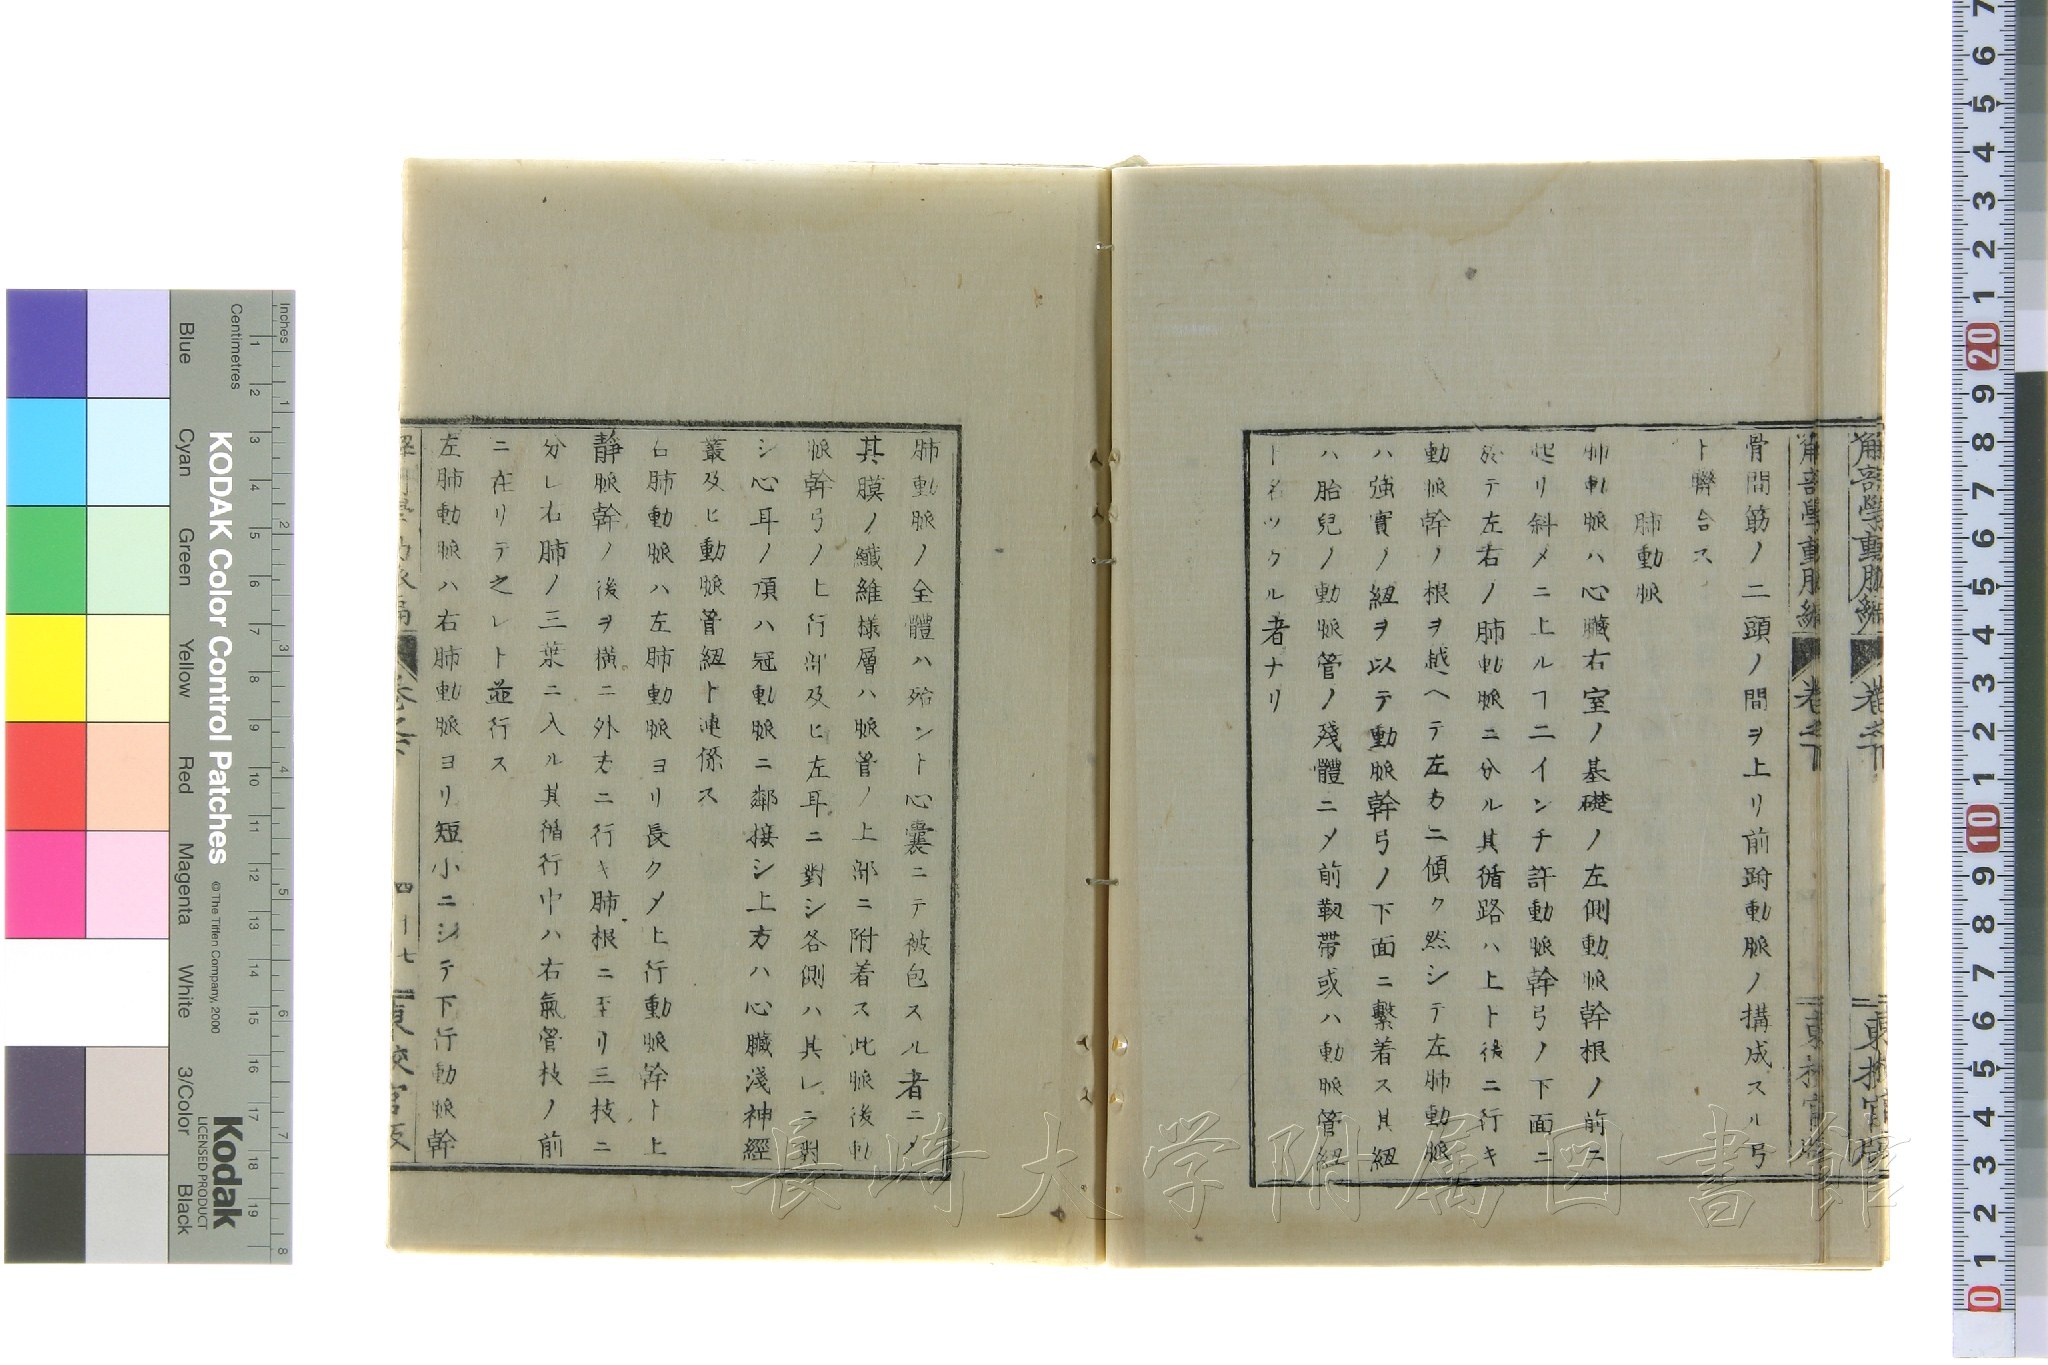 骨間筋ノ二頭ノ間ヲ上リ前跗動脈ノ構成スル弓
ト聯合ス
肺動脈
肺動脈ハ心臓右室ノ基礎ノ左側動脈幹根ノ前ニ
起リ斜メニ上ルヿ二インチ許動脈幹弓ノ下面ニ
於テ左右ノ肺動脈ニ分ル其循路ハ上ト後ニ行キ
動脈幹ノ根ヲ越ヘテ左方ニ傾ク然シテ左肺動脈
ハ強實ノ紐ヲ以テ動脈幹弓ノ下面ニ繫着ス其紐
ハ胎兒ノ動脈管ノ殘體ニメ前靱帶或ハ動脈管紐
ト名ツクル者ナリ
肺動脈ノ全體ハ殆ント心囊ニテ被包スル者ニメ
其膜ノ纎維樣層ハ脈管ノ上部ニ附着ス此脈後動
脈幹弓ノ上行部及ヒ左耳ニ對シ各側ハ其レニ對
シ心耳ノ頂ハ冠動脈ニ鄰接シ上方ハ心臓淺神經
叢及ヒ動脈管紐ト連係ス
右肺動脈ハ左肺動脈ヨリ長クメ上行動脈幹ト上
靜脈幹ノ後ヲ横ニ外方ニ行キ肺根ニ至リ三枝ニ
分レ右肺ノ三葉ニ入ル其循行中ハ右氣管枝ノ前
ニ在リテ之レト並行ス
左肺動脈ハ右肺動脈ヨリ短小ニシテ下行動脈幹
四十七
長崎大学附属図書館
KODAK Color Control Patches
© The Tiffen Company, 2000
Kodak
LICENSED PRODUCT
Inches
Centimetres
Blue
Cyan
Green
Yellow
Red
Magenta
White
3/Color
Black